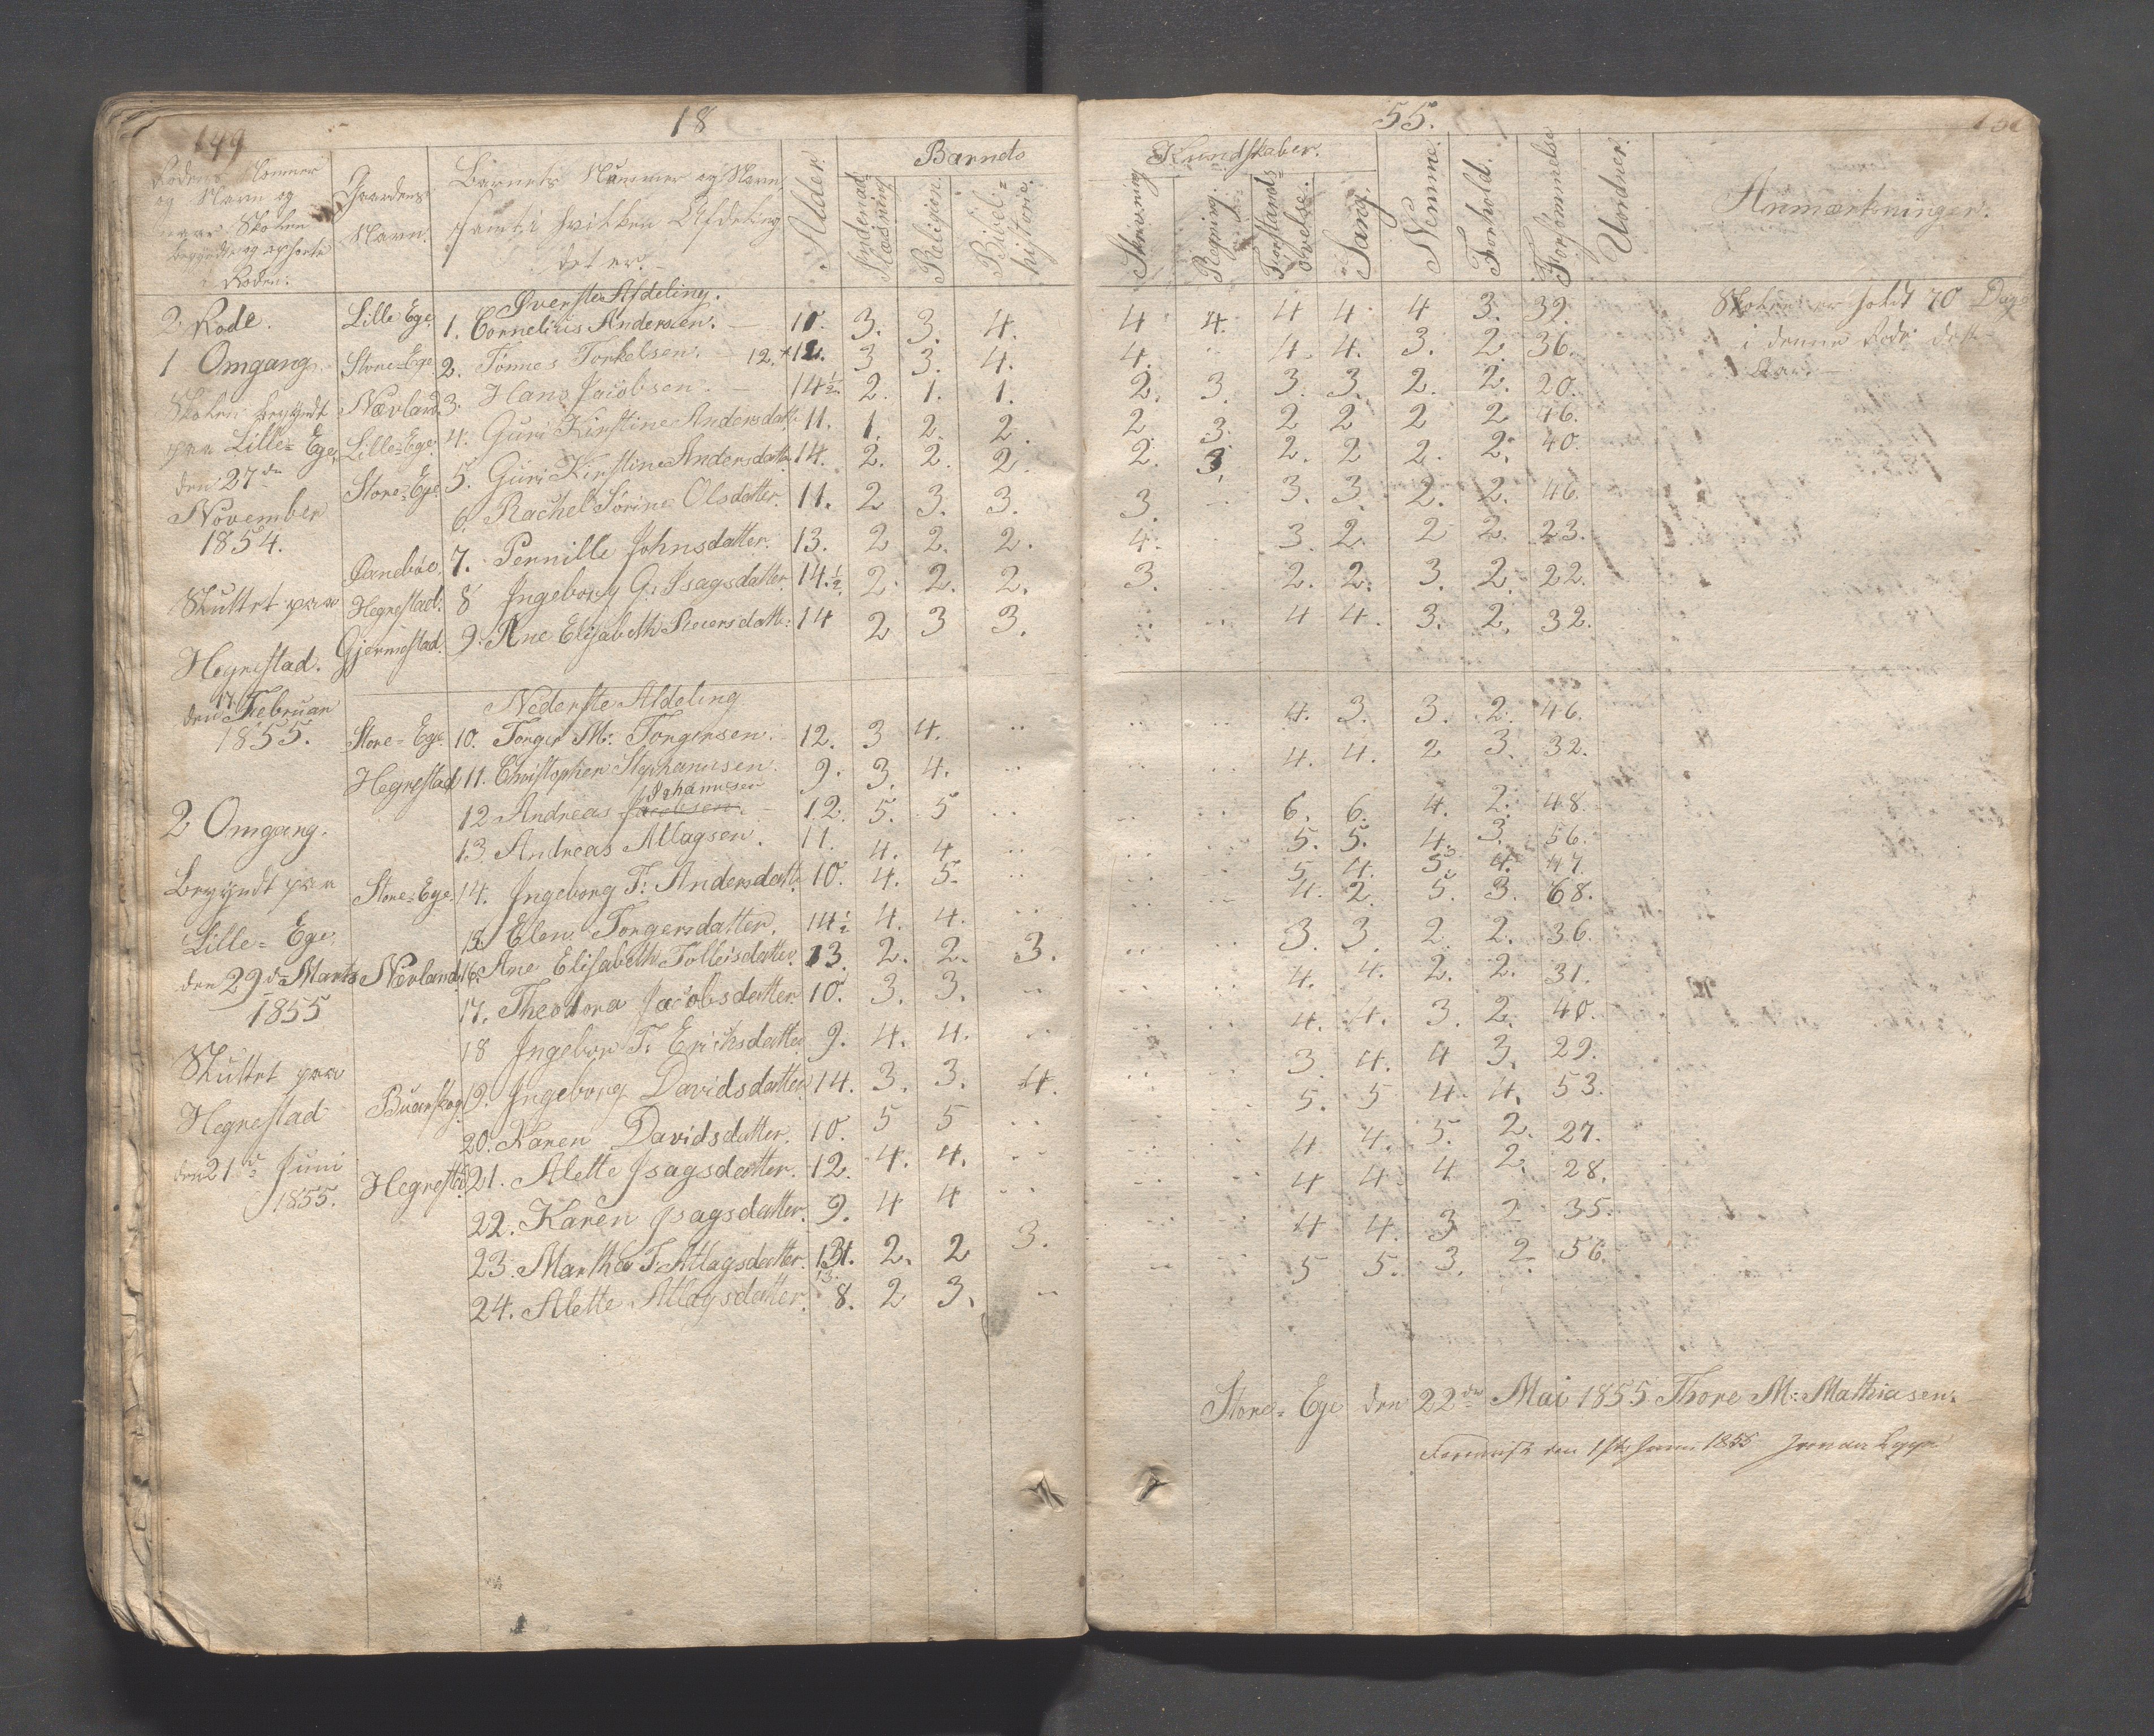 149
18
55.
Rodens Nommer og Navn og naar Skolen begyndte og ophørte i Roden.
Gaardens Navn.
Barnets Nummer og Navn, samt i hvilken Afdeling det er.
Alder.
Barnets Kundskaber.
Indenad Læsning
Religion.
Bibelhistorie.
Skrivning
Regning.
Forstandsøvelse.
Sang.
Nemme.
Forhold.
Forsømmelse
Uorduer.
Anmærkninger.
Øverste Afdeling.
2. Rode. Lille Ege. 1. Cornelius Andersen. — 11. 3. 3. 4. 4 4. 4 4. 4 3. 39. Skolen er holdt 70 Dage
1 Omgang. Store-Ege 2. Tønnes Torkelsen. — 12. 12. 3 3. 4. 4. .. 4. 4. 3. 2. 36. i denne Rode dette
Skolen begyndt Nævland 3. Hans Jacobsen. — 14½ 2. 1. 1. 2. 3. 3. 3. 2. 2. 20. Aar. —
paa Lille=Ege, Lille=Ege. 4. Guri Kirstine Andersdatt. 11. 1. 2. 2. 2 3. 2 2 2 2 46.
den 27de Store=Ege. 5. Guri Kirstine Andersdatter 14. 2. 2. 2. 2. 3. 2. 2 2. 2. 40.
November 6. Rachel Sørine Olsdatter. 11. 2 3. 3. 3. .. 3. 3. 2. 2. 46.
1854. Ørnebøe. 7. Pernille Johnsdatter. 13. 2 2. 2. 4. .. 3. 2. 2 2. 23.
Sluttet paa Hegrestad. 8 Ingeborg G. Isagsdatter. 14.½ 2. 2. 2. 3. .. 2. 2. 3. 2. 22.
Hegrestad. Gjermestad. 9. Ane Elisabeth Sveiersdatt: 14 2 3 3. .. .. 4 4. 3. 2. 32.
den 17 Februar
1855.
Nederste Afdeling
Store=Ege. 10. Torger M: Torgersen. 12. 3 4. .. .. .. 4. 3. 3. 2. 46.
Hegrestad 11. Christopher Stephanusen. 9. 3. 4. .. .. .. 4. 4. 2 3. 32.
2 Omgang. 12 Andreas Jacobsen. Johannesen 12. 5. 5 .. .. .. 6. 6. 4. 2. 48.
13. Andreas Atlagsen. 11. 4. 4 .. .. .. 5. 5. 4. 3. 56.
begyndt paa Store=Ege. 14. Ingeborg T: Andersdatt. 10. 4. 5. .. .. .. 5 4. 5. 4. 47.
Lille=Ege, 15. Elen Torgersdatter. 14½ 4. 4. .. .. .. 4. 2. 5. 3. 68.
den 29de Marts Nævland. 16. Ane Elisabeth Tolleisdatter. 13. 2. 2. 3. .. .. 3. 3. 2. 2. 36.
1855 17. Theodora Jacobsdatter 10. 3. 3. .. .. .. 4. 4. 2. 2. 31.
18 Ingebor T. Eriksdatter 9. 4. 4. .. .. .. 4. 4. 3. 2. 40.
Sluttet paa Buarskog 19. Ingeborg Davidsdatter 14. 3. 3. 4. .. .. 3. 4. 4 3. 29.
Hegrestad 20. Karen Davidsdatter. 10. 5 5 .. .. .. 5. 5 4. 4. 53.
den 21de Juni Hegrestad 21. Alette Isagsdatter. 12. 4. 4. .. .. .. 4 4. 5. 2. 27.
1855. 22. Karen Isagsdatter. 9. 4 4 .. .. .. 4 4. 4 2. 28.
23. Marthe T. Atlagsdatter. 131. 13. 2. 2 3. .. .. 4 4. 3 2 35.
24. Alette Atlagsdatter. 8. 2 3. .. .. .. 5 5. 3. 2. 56.
Store=Ege den 22de Mai 1855 Thore M: Mathiasen.
den 1ste Juni 1855